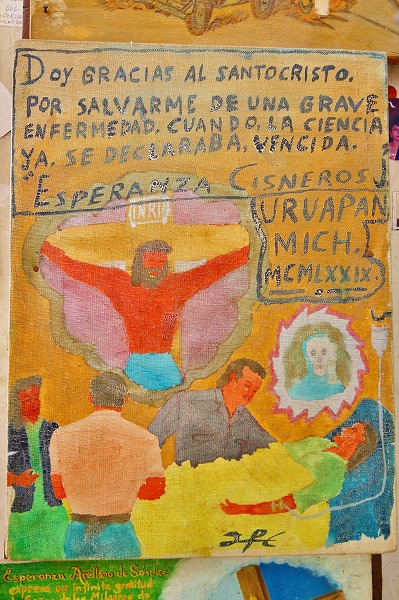 DOY GRACIAS AL SANTOCRISTO.
POR SALVARME DE UNA GRAVE
ENFERMEDAD. CUANDO, LA CIENCIA
YA, SE DECLARABA, VENCIDA.
"ESPERANZA CISNEROS J
URUAPAN
MICH.
MCMLXXIX.
INRI
Esperanza Arellano de
expresa su infinita gratitud
Milagros de